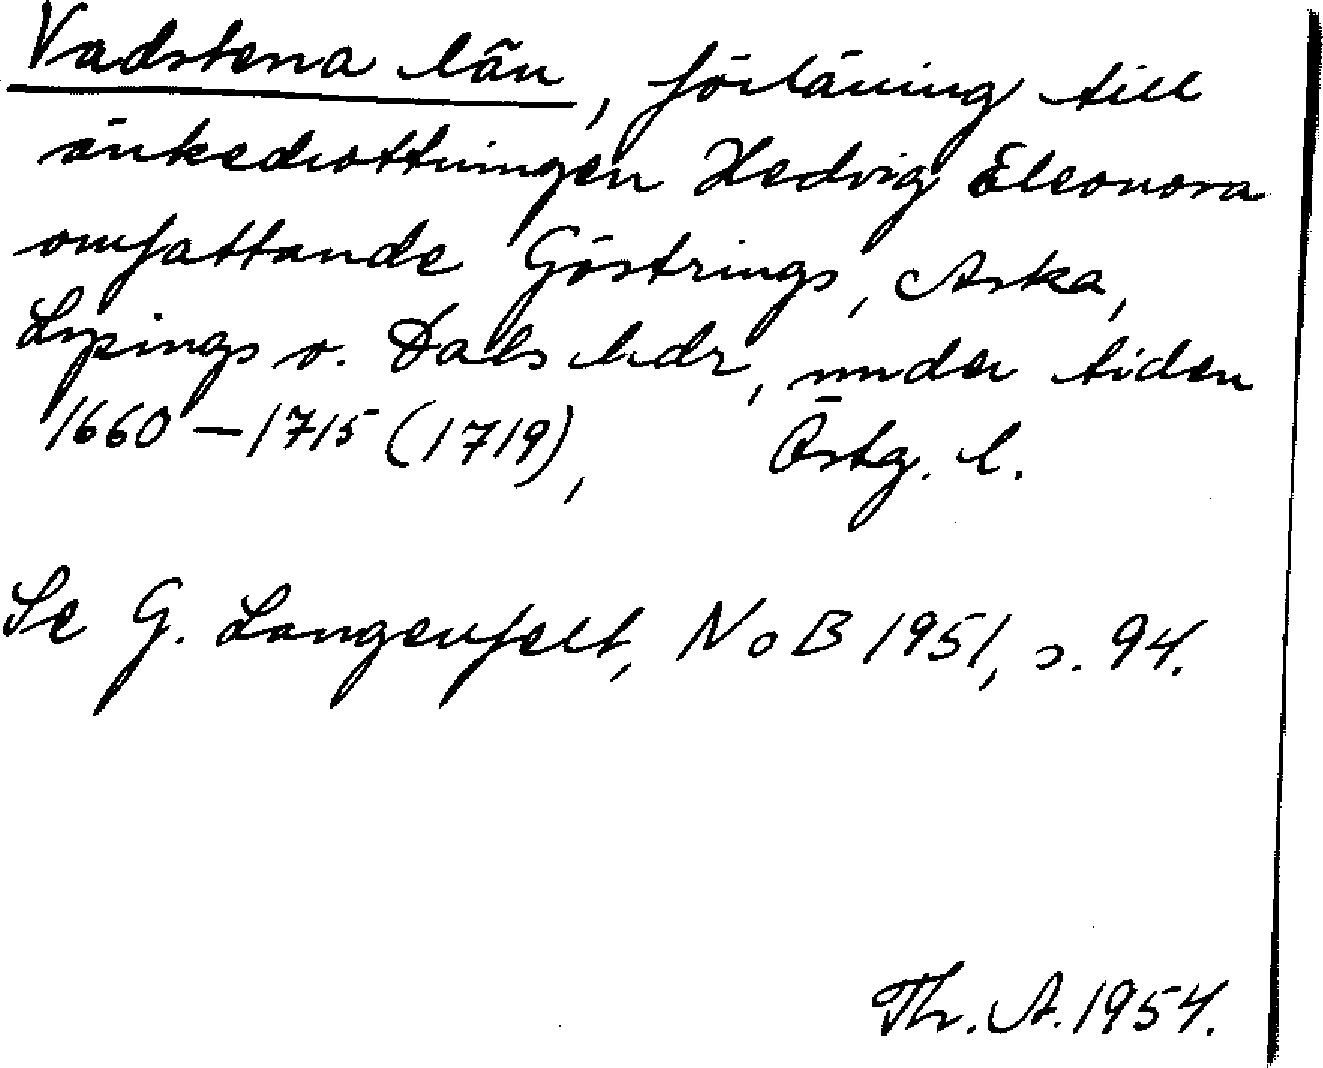 Vadstena län, förläning till
änkedrottningen Hedvig Eleonora
omfattande Göstrings, Aska,
Lysings o. Dals hdr, under tiden
1660–1715 (1719), Östg. l.
Se G. Langenfelt, NoB 1951, s. 94.
Th. A. 1954.